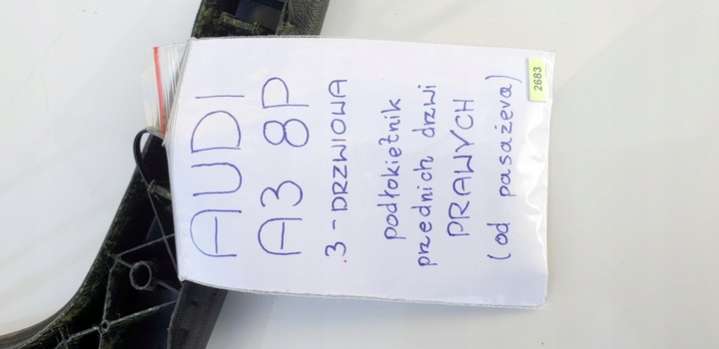 AUDI
A3 8P
3-DRZWIOWA
podłokietnik
przednich drzwi
PRAWYCH
(od pasażera)
2683